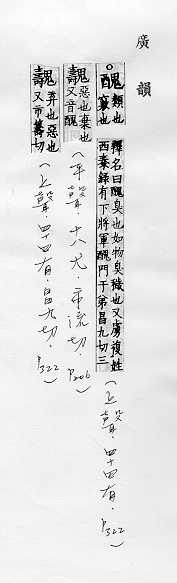 廣韻
醜 類也竅也釋名曰醜臭也如物臭穢也又虜複姓西秦錄有下將軍醜門于弟昌九切三(上聲.四十四有.P322)
魗 惡也棄也又音醜(平聲.十八尤.市流切.P206)
魗 弃也惡也又市流切(上聲.四四有.昌九切.P322)